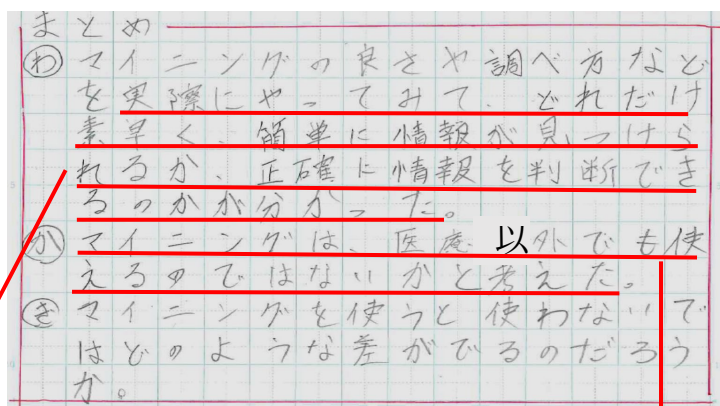 まとめ
わ マイニングの良さや調べ方など
を実際にやってみて、どれだけ
素早く、簡単に情報が見つけら
れるか、正確に情報を判断でき
るのかが分かった。
か マイニングは、医療以外でも使
えるのではないかと考えた。
き マイニングを使うと使わないで
はどのような差がでるのだろう
か。